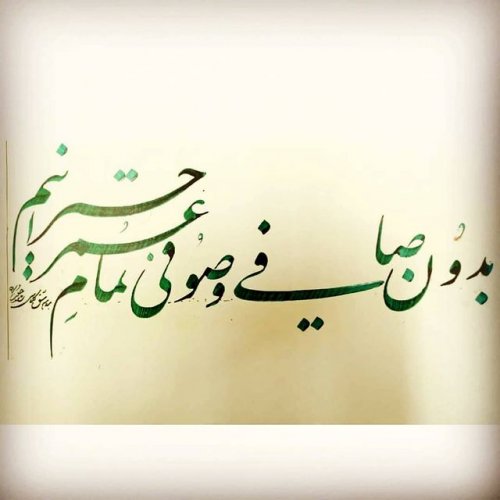 بدون صافی و صوفی تمام عمر حیرانیم